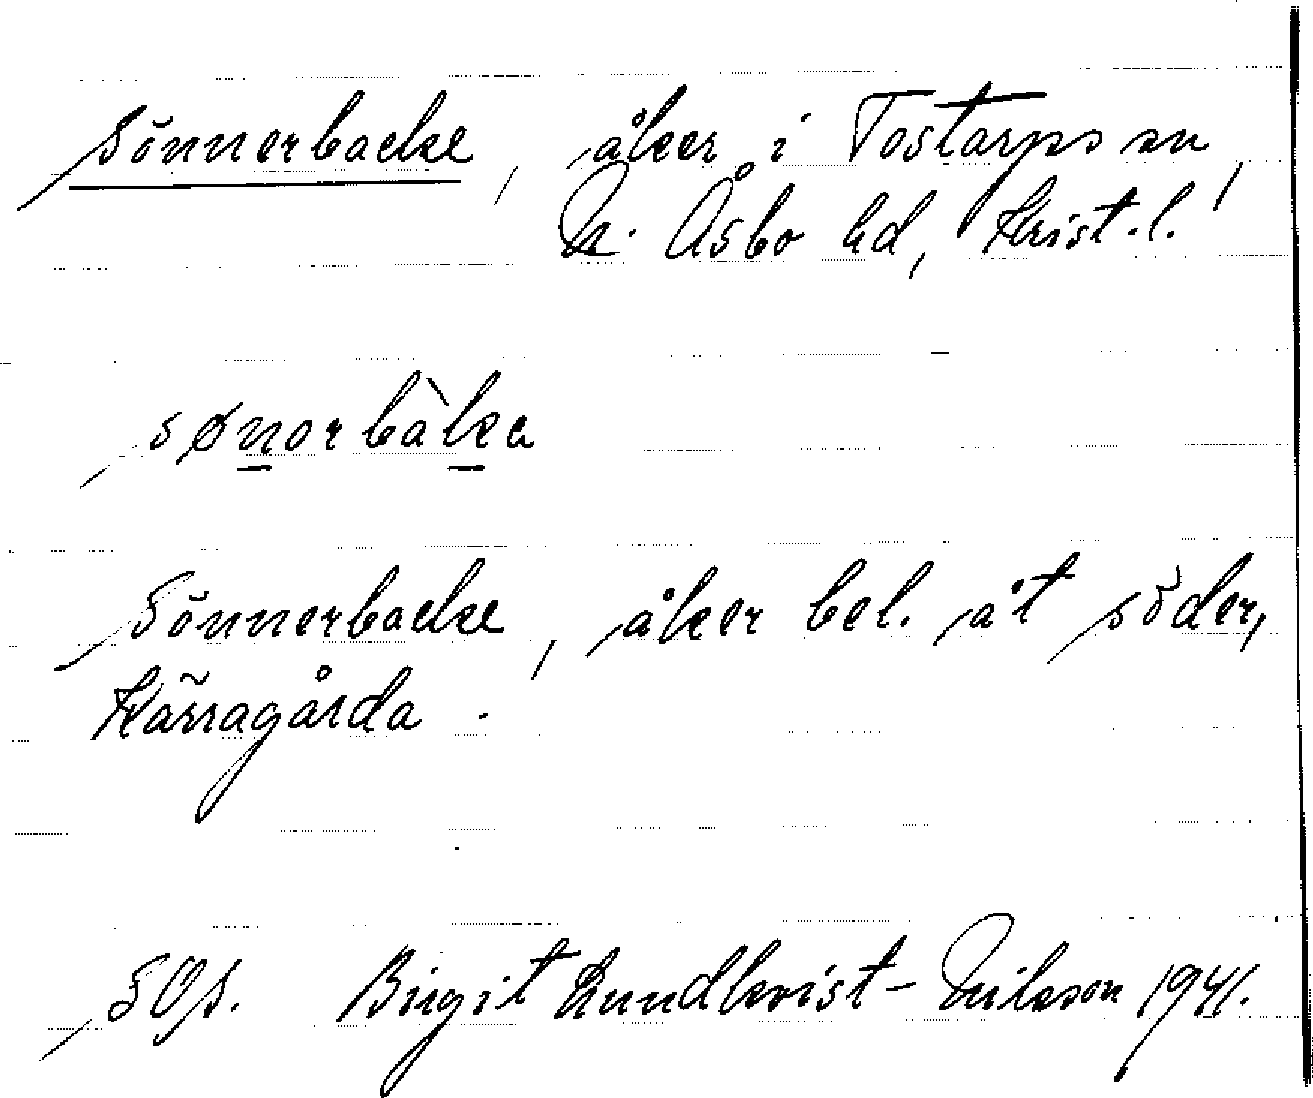 Sönnerbacke, åker i Tostarps sn,
N. Åsbo hd, Krist.l.
sønorbàka
Sönnerbacke, åker bel. åt söder,
Kärragårda.
Birgit Lundkvist-Nilsson 1941.